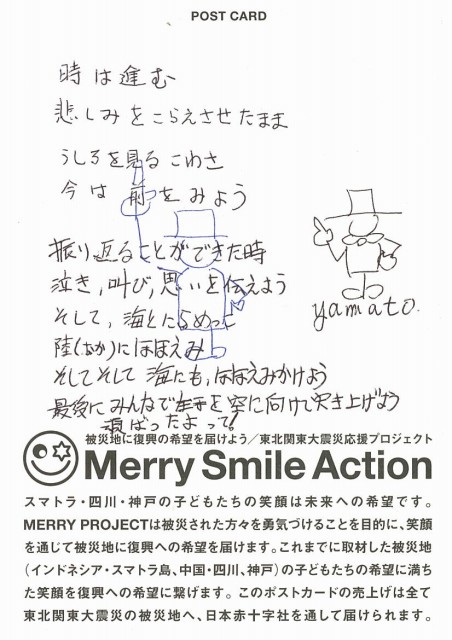 POST CARD
時は進む
悲しみをこらえさせたまま
うしろを見るこわさ
今は前をみよう
振り返ることができた時
泣き,叫び,思いを伝えよう
そして,海とにらめっこ
陸(おか)にほほえみ
そしてそして 海にも,ほほえみかけよう
最後に みんなで 手を空に向けて突き上げよう
頑ばったよって!
yamato.
被災地に復興の希望を届けよう/東北関東大震災応援プロジェクト
Merry Smile Action
スマトラ・四川・神戸の子どもたちの笑顔は未来への希望です。
MERRY PROJECTは被災された方々を勇気づけることを目的に、笑顔
を通じて被災地に復興への希望を届けます。これまでに取材した被災地
(インドネシア・スマトラ島、中国・四川、神戸)の子どもたちの希望に満ち
た笑顔を復興への希望に繋げます。このポストカードの売上げは全て
東北関東大震災の被災地へ、日本赤十字社を通して届けられます。